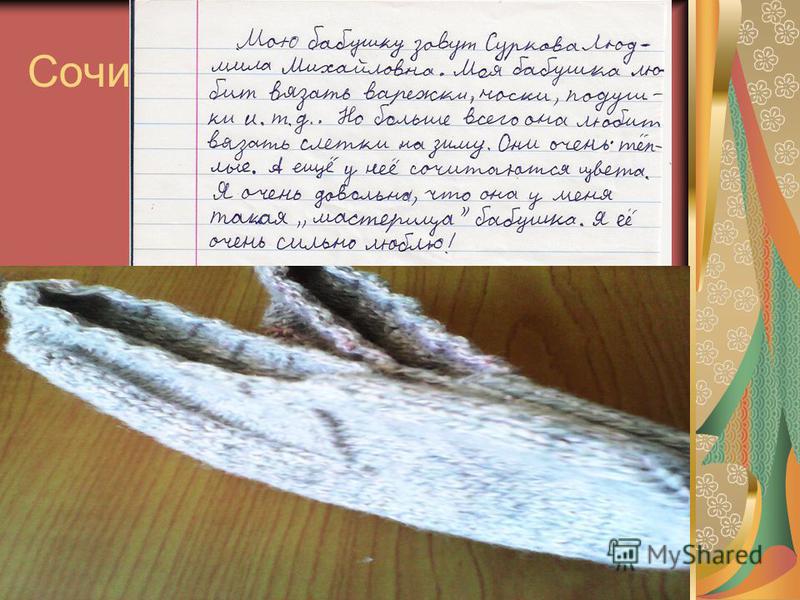 Сочи
Мою бабушку зовут Суркова Люд-
мила Михайловна. Моя бабушка лю-
бит вязать варежки, носки, подуш-
ки и. т. д.. Но больше всего она любит
вязать слетки на зиму. Они очень тёп-
лые. А ещё у неё сочитаются цвета.
Я очень довольна, что она у меня
такая „мастерица” бабушка. Я её
очень сильно люблю!
MyShared